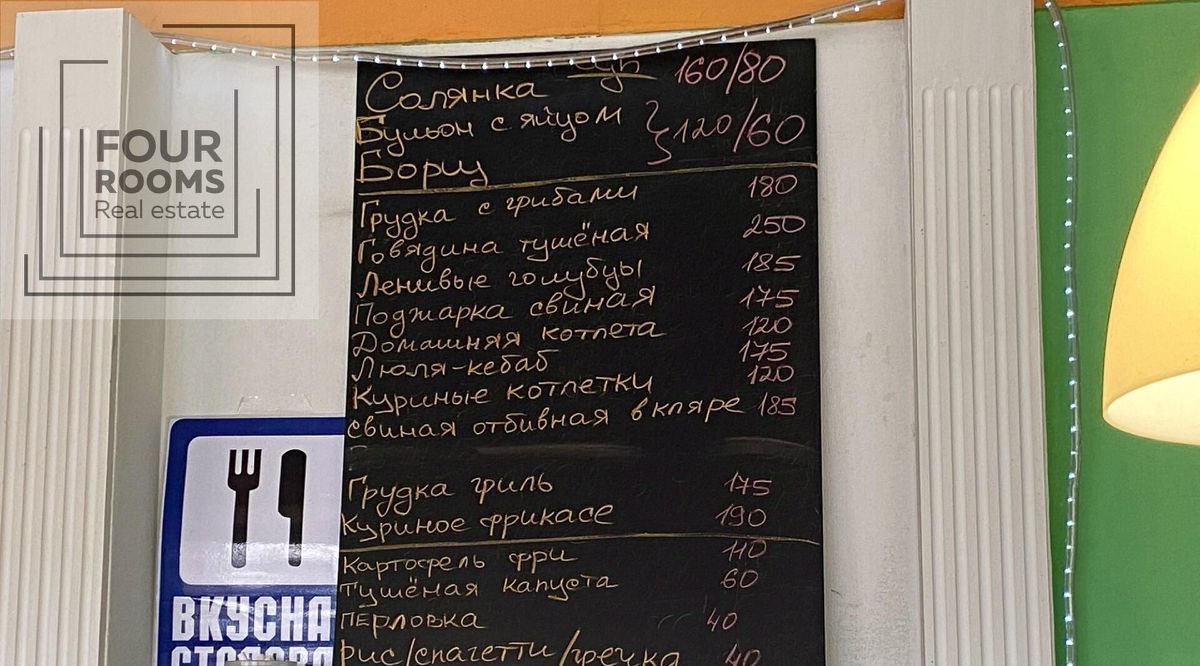 FOUR
ROOMS
Real estate
Солянка 160/80
Бульон с яйцом } 120/60
Борщ
Грудка с грибами 180
Говядина тушёная 250
Ленивые голубцы 185
Поджарка свиная 175
Домашняя котлета 120
Люля-кебаб 175
Куриные котлетки 120
свиная отбивная в кляре 185
Грудка гриль 175
Куриное фрикасе 190
Картофель фри 110
Тушёная капуста 60
Перловка 40
рис/спагетти/гречка 40
ВКУСНА